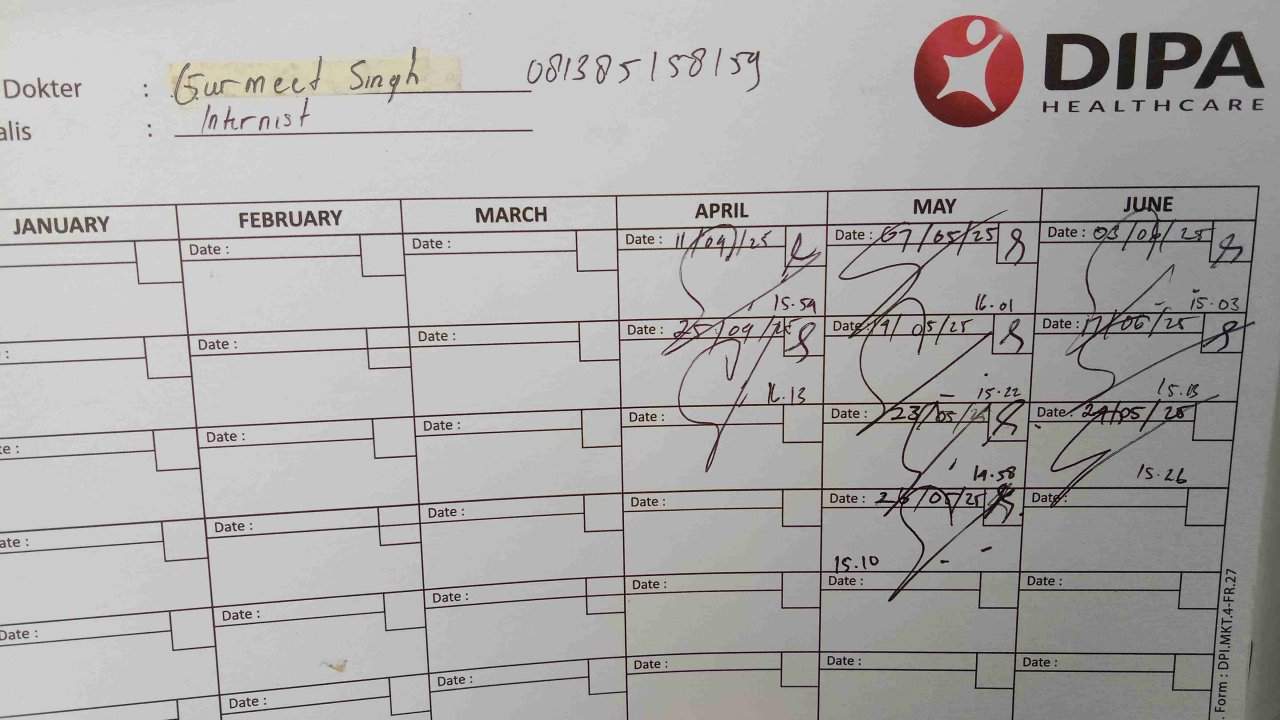 Dokter : Gurmeet Singh 081385158159
alis : Internist
DIPA
HEALTHCARE
JANUARY FEBRUARY MARCH APRIL MAY JUNE
Date : Date : Date : 11/04/25 Date : 07/05/25 Date : 03/06/25
15.59 16.01 15.03
: Date : Date : Date : 25/04/25 Date : 19/05/25 Date : 17/06/25
16.13 15.22 15.13
te : Date : Date : Date : Date : 23/05/25 Date : 24/05/25
14.58 15.26
ate : Date : Date : Date : Date : /05/25 Date
15.10
Date : Date : Date : Date : Date : Date :
Date : Date : Date : Date : Date :
. Form : DPI.MKT.4-FR.27